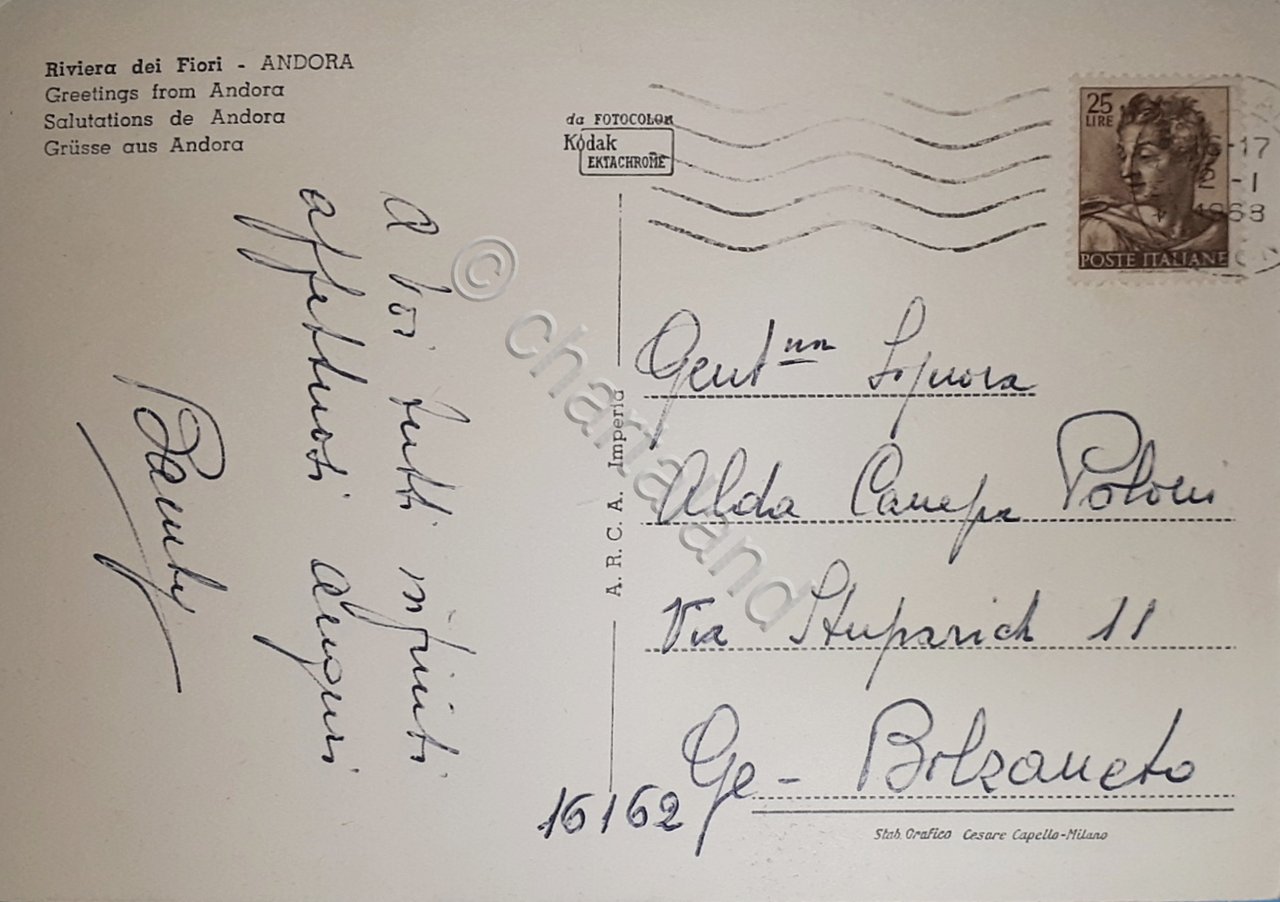 Riviera dei Fiori - ANDORA
Greetings from Andora
Salutations de Andora
Grüsse aus Andora
da FOTOCOLOR
Kodak
EKTACHROME
25
LIRE
POSTE ITALIANE
16-17
2-1
1968
A voi tutti infiniti
affettuosi auguri
A. R. C. A. Imperia
Gent.ma Signora
Alda Canepa Poloni
Via Stuparich 11
Ge - Bolzaneto
16162
Stab. Grafico Cesare Capello-Milano
© chartaland